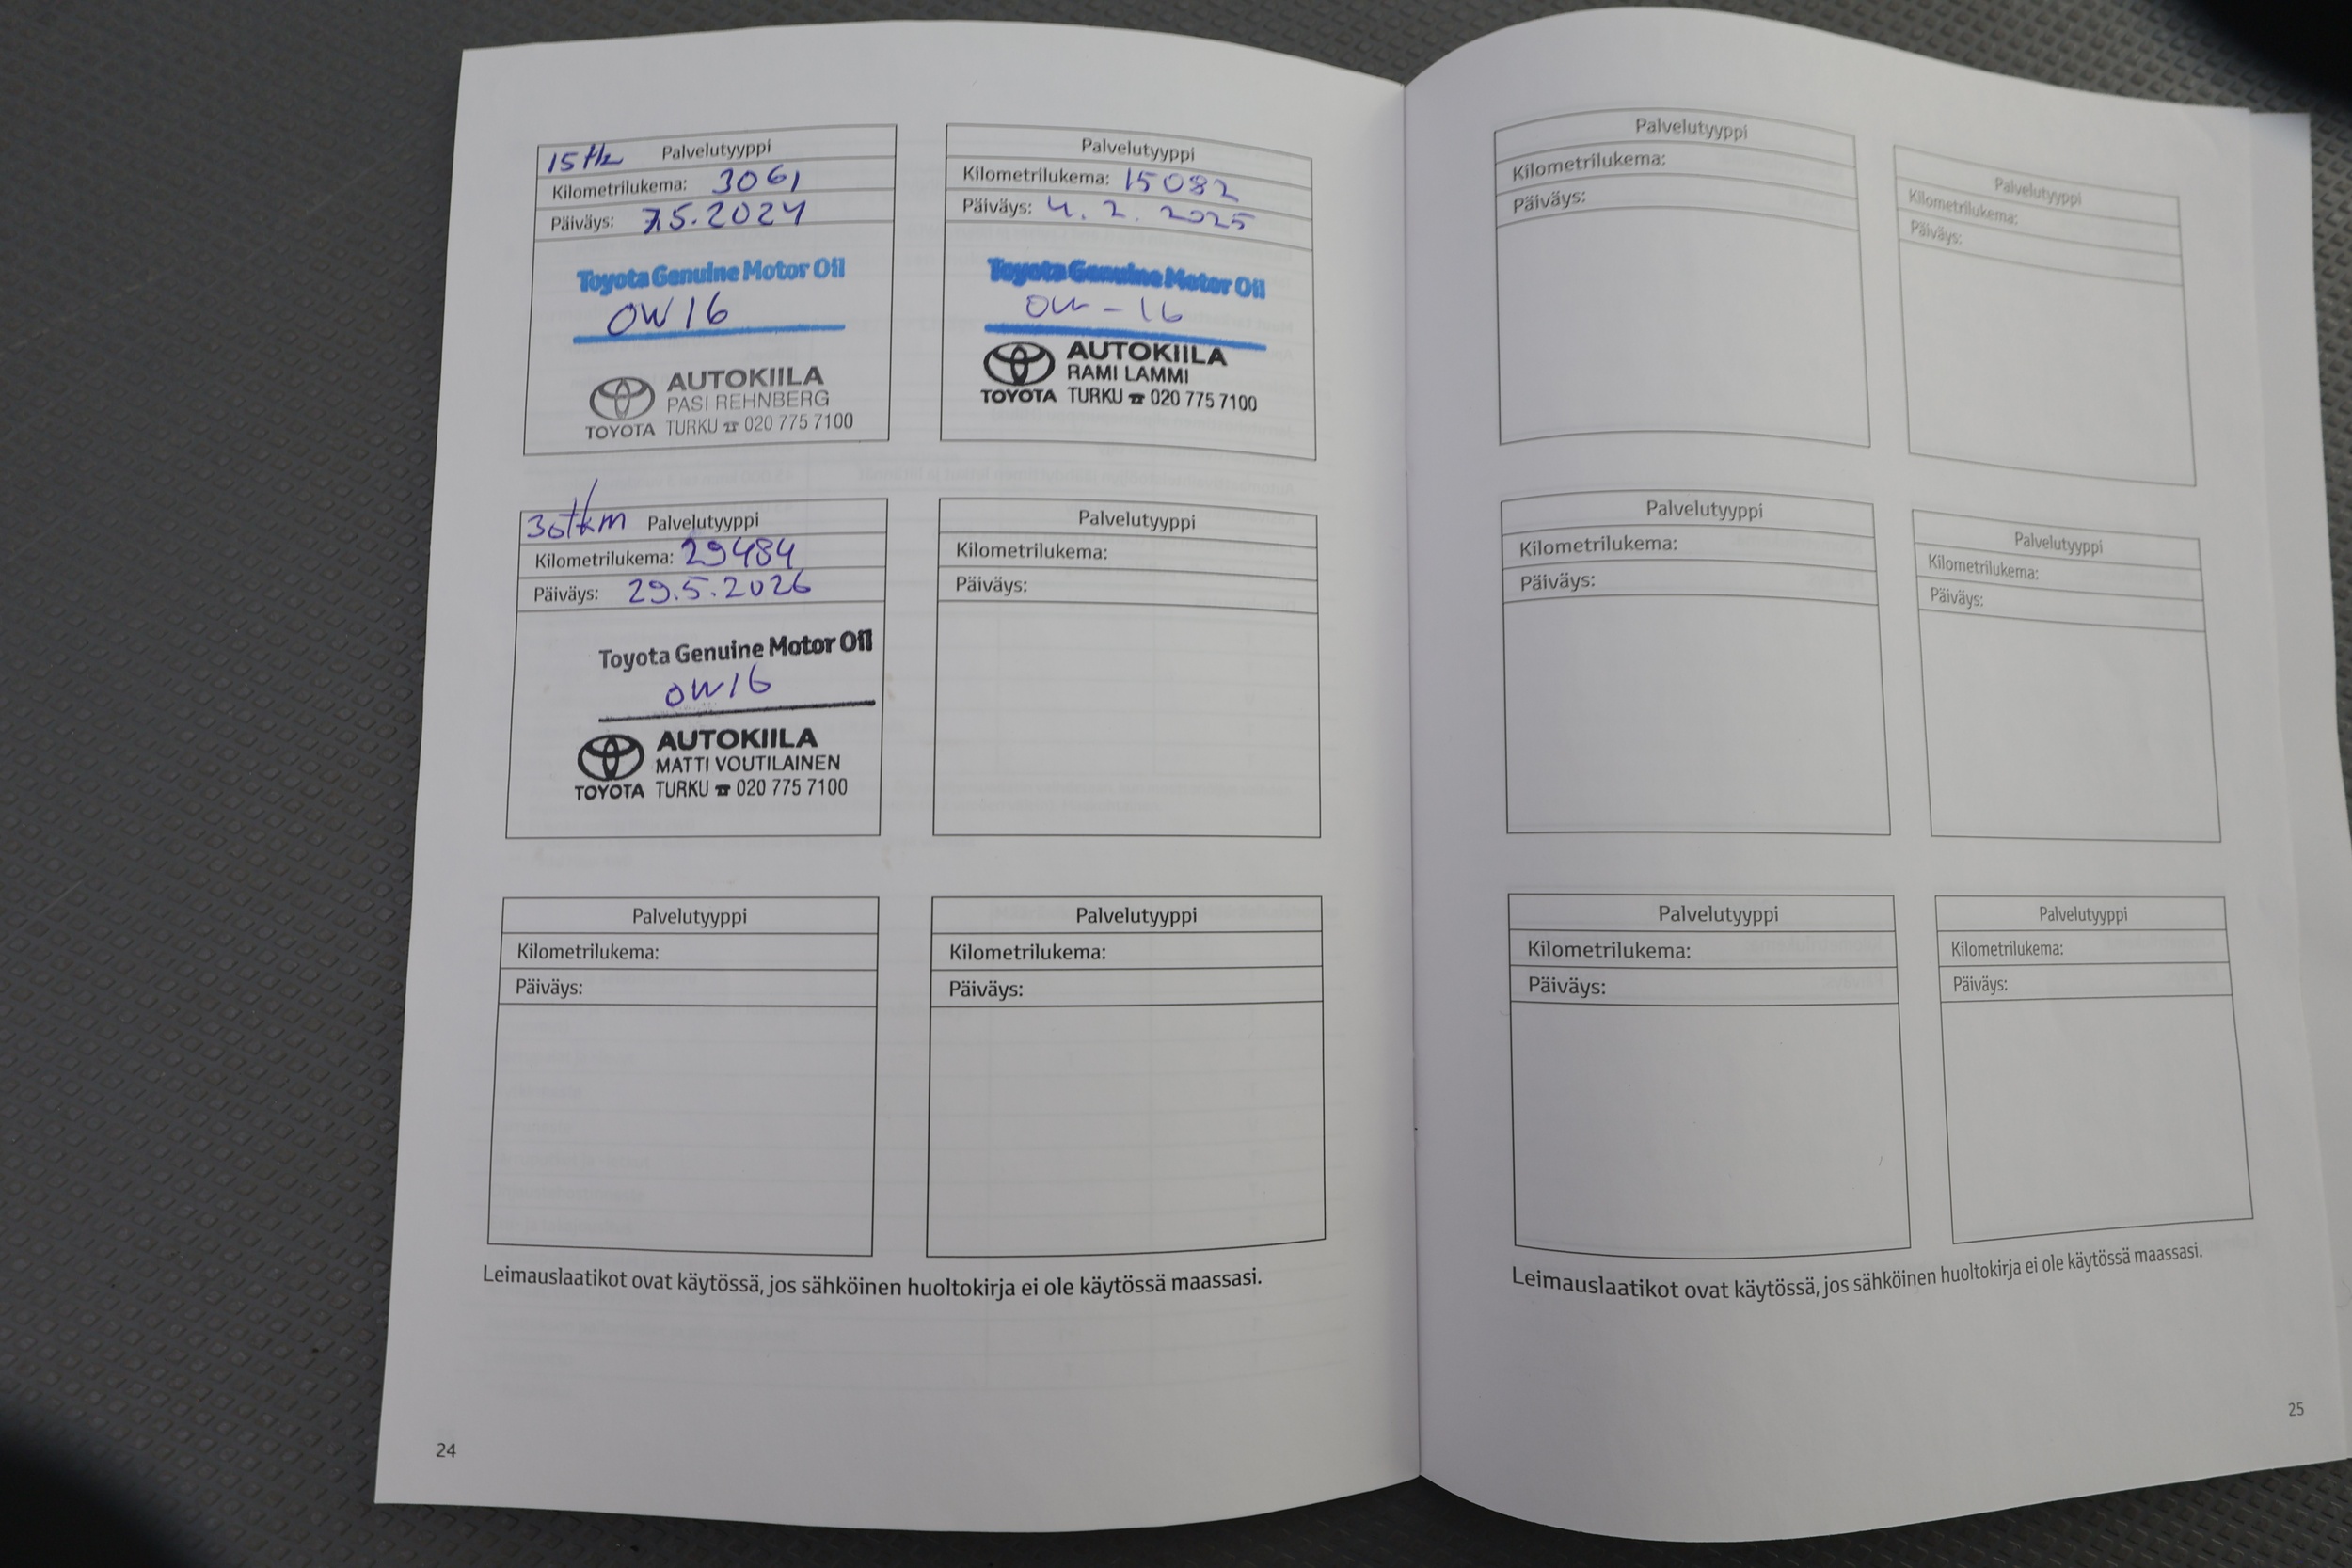 15tk Palvelutyyppi
Kilometrilukema: 3061
Päiväys: 7.5.2024
Toyota Genuine Motor Oil
0W16
AUTOKIILA
PASI REHNBERG
TOYOTA TURKU ☎ 020 775 7100
Palvelutyyppi
Kilometrilukema: 15082
Päiväys: 4.2.2025
Toyota Genuine Motor Oil
0W-16
AUTOKIILA
RAMI LAMMI
TOYOTA TURKU ☎ 020 775 7100
30tkm Palvelutyyppi
Kilometrilukema: 29484
Päiväys: 29.5.2026
Toyota Genuine Motor Oil
0W16
AUTOKIILA
MATTI VOUTILAINEN
TOYOTA TURKU ☎ 020 775 7100
Palvelutyyppi
Kilometrilukema:
Päiväys:
Palvelutyyppi
Kilometrilukema:
Päiväys:
Palvelutyyppi
Kilometrilukema:
Päiväys:
Leimauslaatikot ovat käytössä, jos sähköinen huoltokirja ei ole käytössä maassasi.
24
Palvelutyyppi
Kilometrilukema:
Päiväys:
Palvelutyyppi
Kilometrilukema:
Päiväys:
Palvelutyyppi
Kilometrilukema:
Päiväys:
Palvelutyyppi
Kilometrilukema:
Päiväys:
Palvelutyyppi
Kilometrilukema:
Päiväys:
Palvelutyyppi
Kilometrilukema:
Päiväys:
Leimauslaatikot ovat käytössä, jos sähköinen huoltokirja ei ole käytössä maassasi.
25